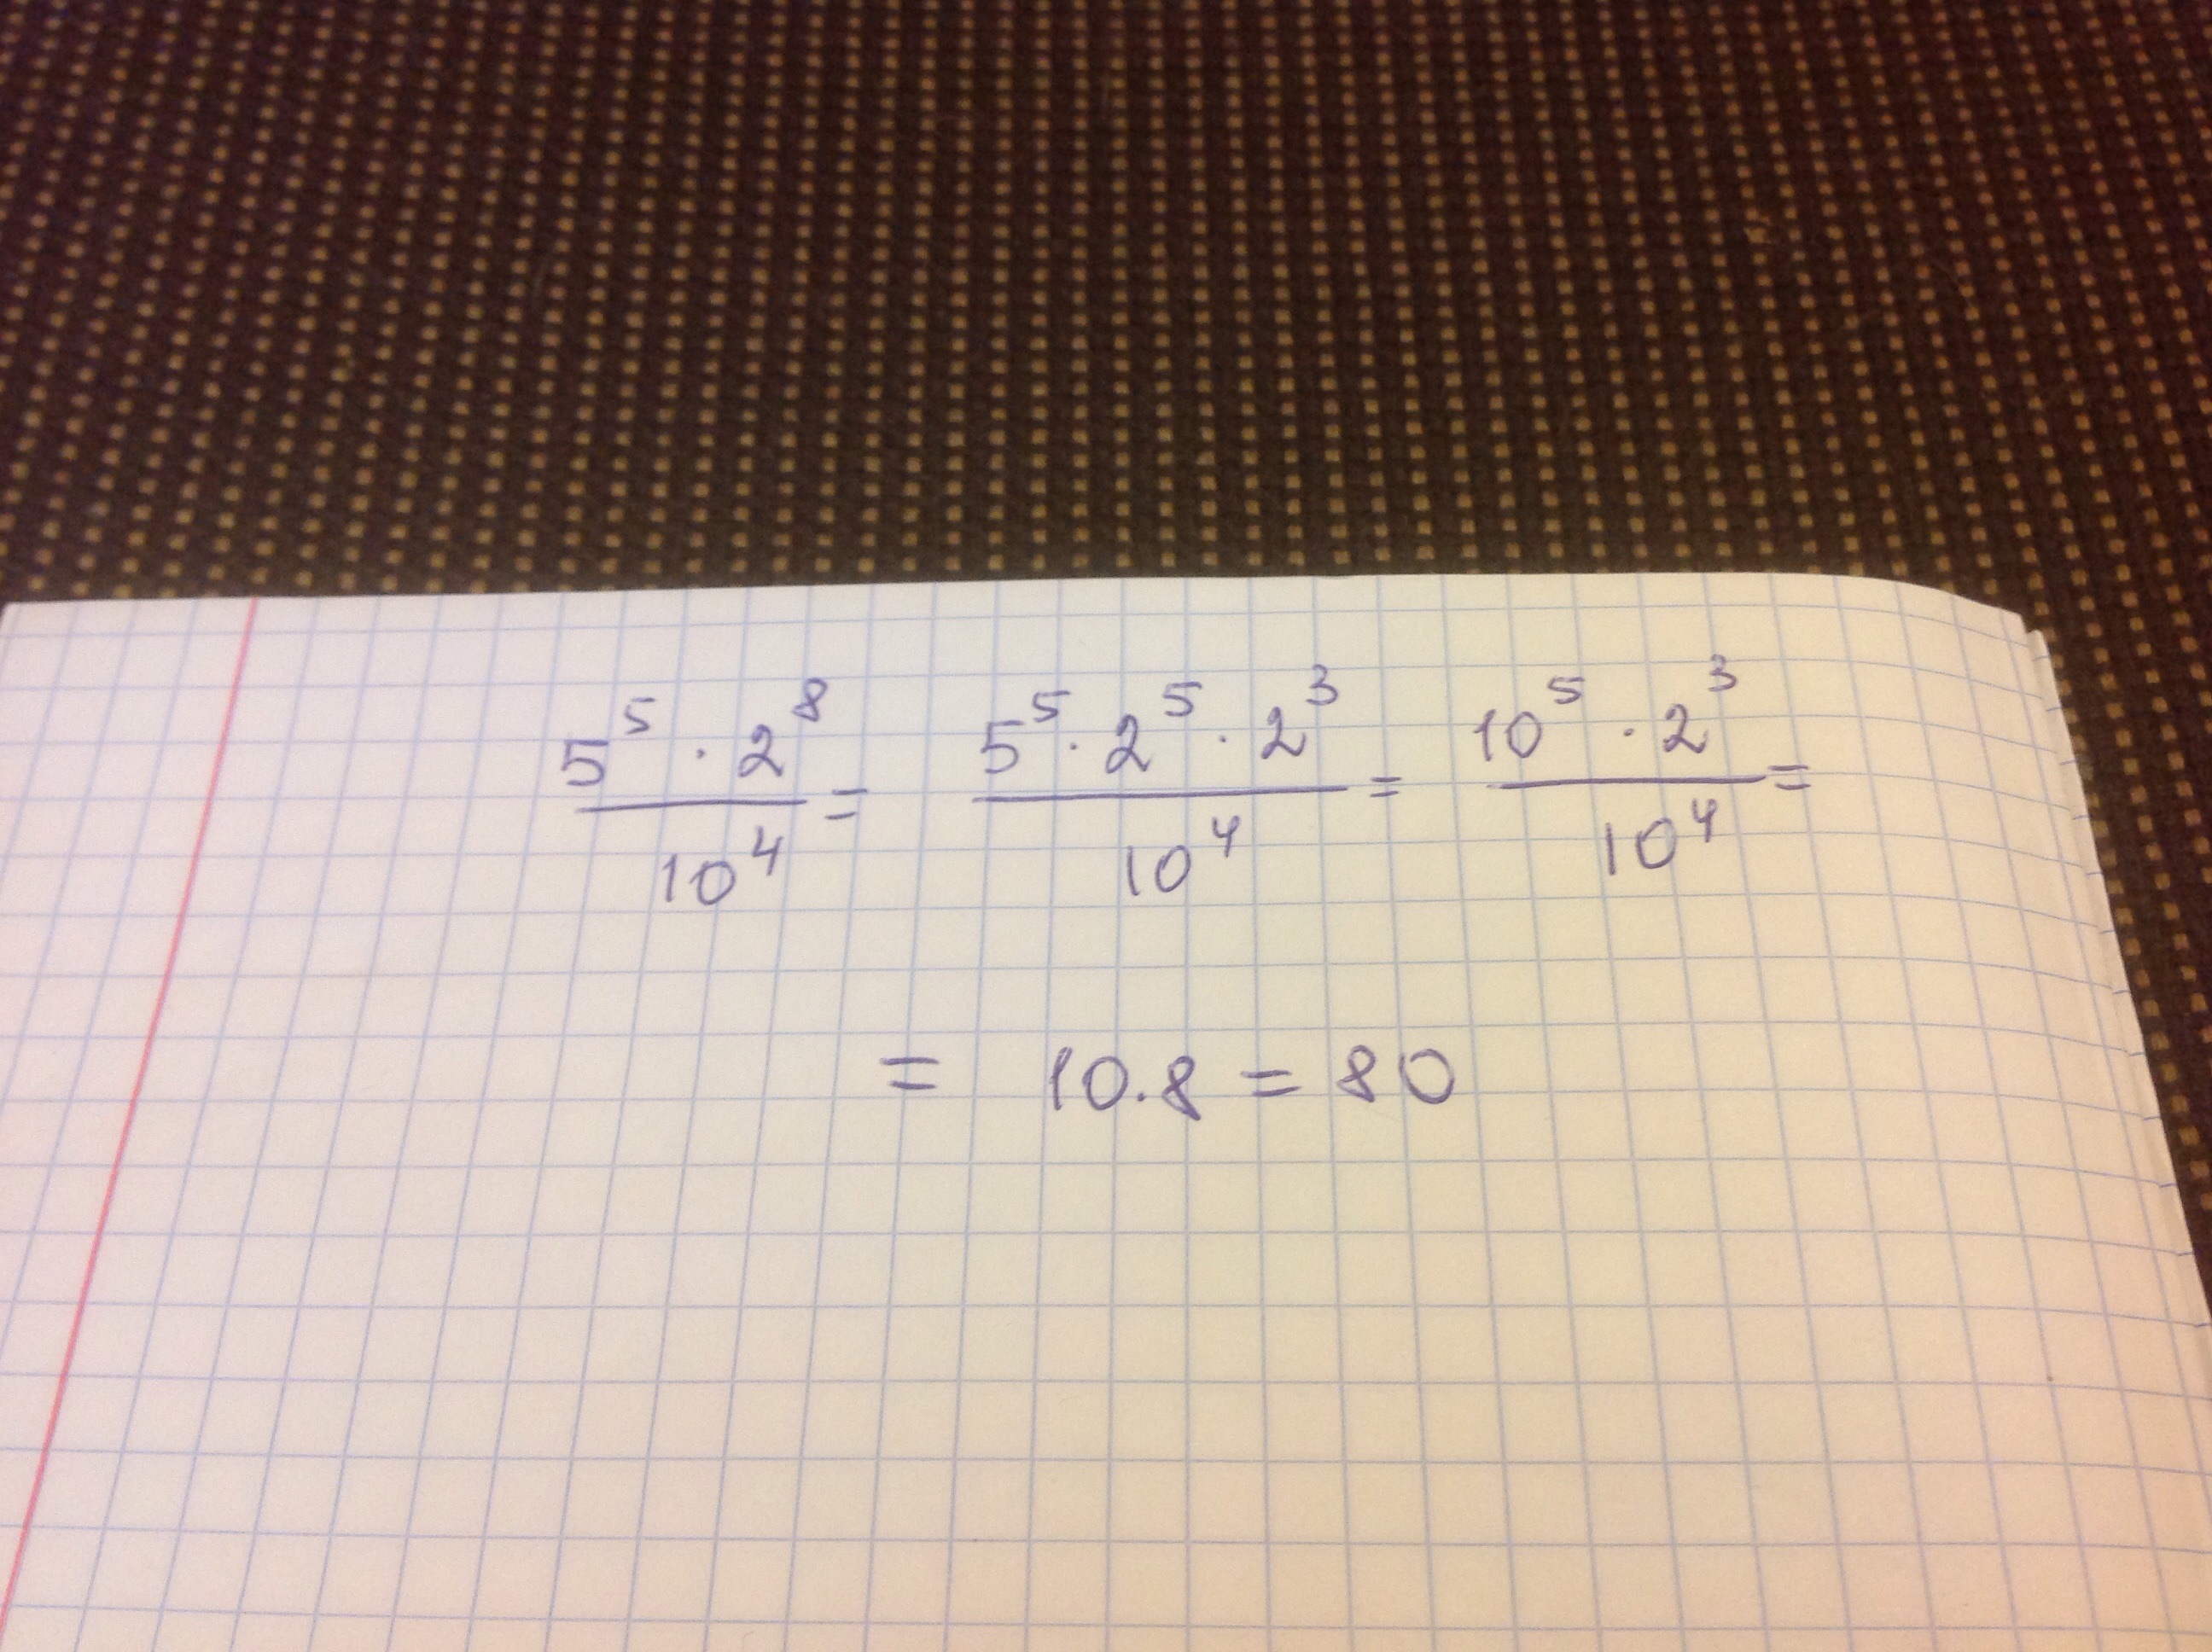 5⁵ · 2⁸ / 10⁴ = 5⁵ · 2⁵ · 2³ / 10⁴ = 10⁵ · 2³ / 10⁴ =
= 10 · 8 = 80